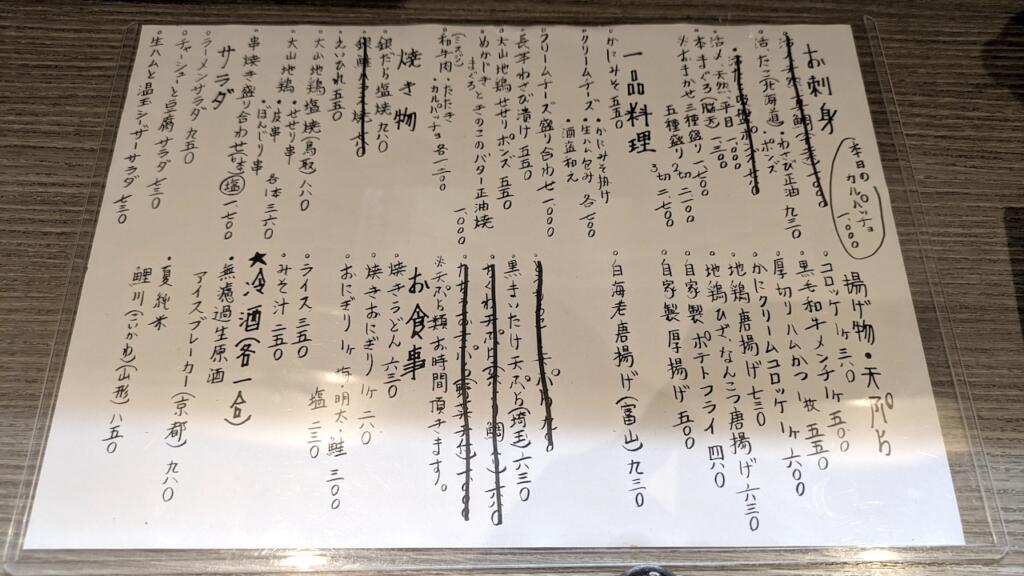 お刺身
本日のカルパッチョ 一、000
。活たこ(北海道)・わさび正油 九三0
・ポンズ
。活〆天然平目 一、000
。本まぐろ 一、三00
※おまかせ三種盛り 一、七00
五種盛り 二切 二、一00
3切 二、七00
一品料理
。かにみそ 五五0
。クリームチーズ・かにみそ掛け
・生ハム包み 各 六00
・酒盗和え
。クリームチーズ盛り合わせ 一、000
。長芋わさび漬け 五五0
。大山地鶏せせりポンズ 五五0
。めかじきときのこのバター正油焼 一、000
まぐろ
。和牛肉・たたき
・カルパッチョ 各一、二00
焼き物
。銀だら塩焼 九八0
。えいひれ 五五0
。大山地鶏塩焼(鳥取) 八八0
。大山地鶏・せせり串
・皮串 各二本 三六0
・ぼんじり串
。串焼き盛り合わせ 塩 一、七00
サラダ
。ラーメンサラダ 九五0
。チャーシューと豆腐サラダ 七三0
。生ハムと温玉シーザーサラダ 七三0
揚げ物・天ぷら
。コロッケ一ヶ 三八0
。黒毛和牛メンチ一ヶ 五00
。厚切りハムかつ一枚 五五0
。かにクリームコロッケ一ヶ 六00
。地鶏唐揚げ 七三0
。地鶏ひざなんこつ唐揚げ 六三0
。自家製ポテトフライ 四八0
。自家製厚揚げ 五00
。白海老唐揚げ(富山) 九三0
。黒まいたけ天ぷら(埼玉) 六三0
※天ぷら類お時間頂きます。
お食事
。焼きうどん 六三0
。焼きおにぎり一ヶ 二八0
。おにぎり一ヶ 梅・明太・鮭 三00
塩 二三0
。ライス 三五0
。みそ汁 二五0
★冷酒(各一合)
・無濾過生原酒
アイスブレーカー(京都) 九八0
・夏純米
鯉川(こいかわ)(山形) 八五0